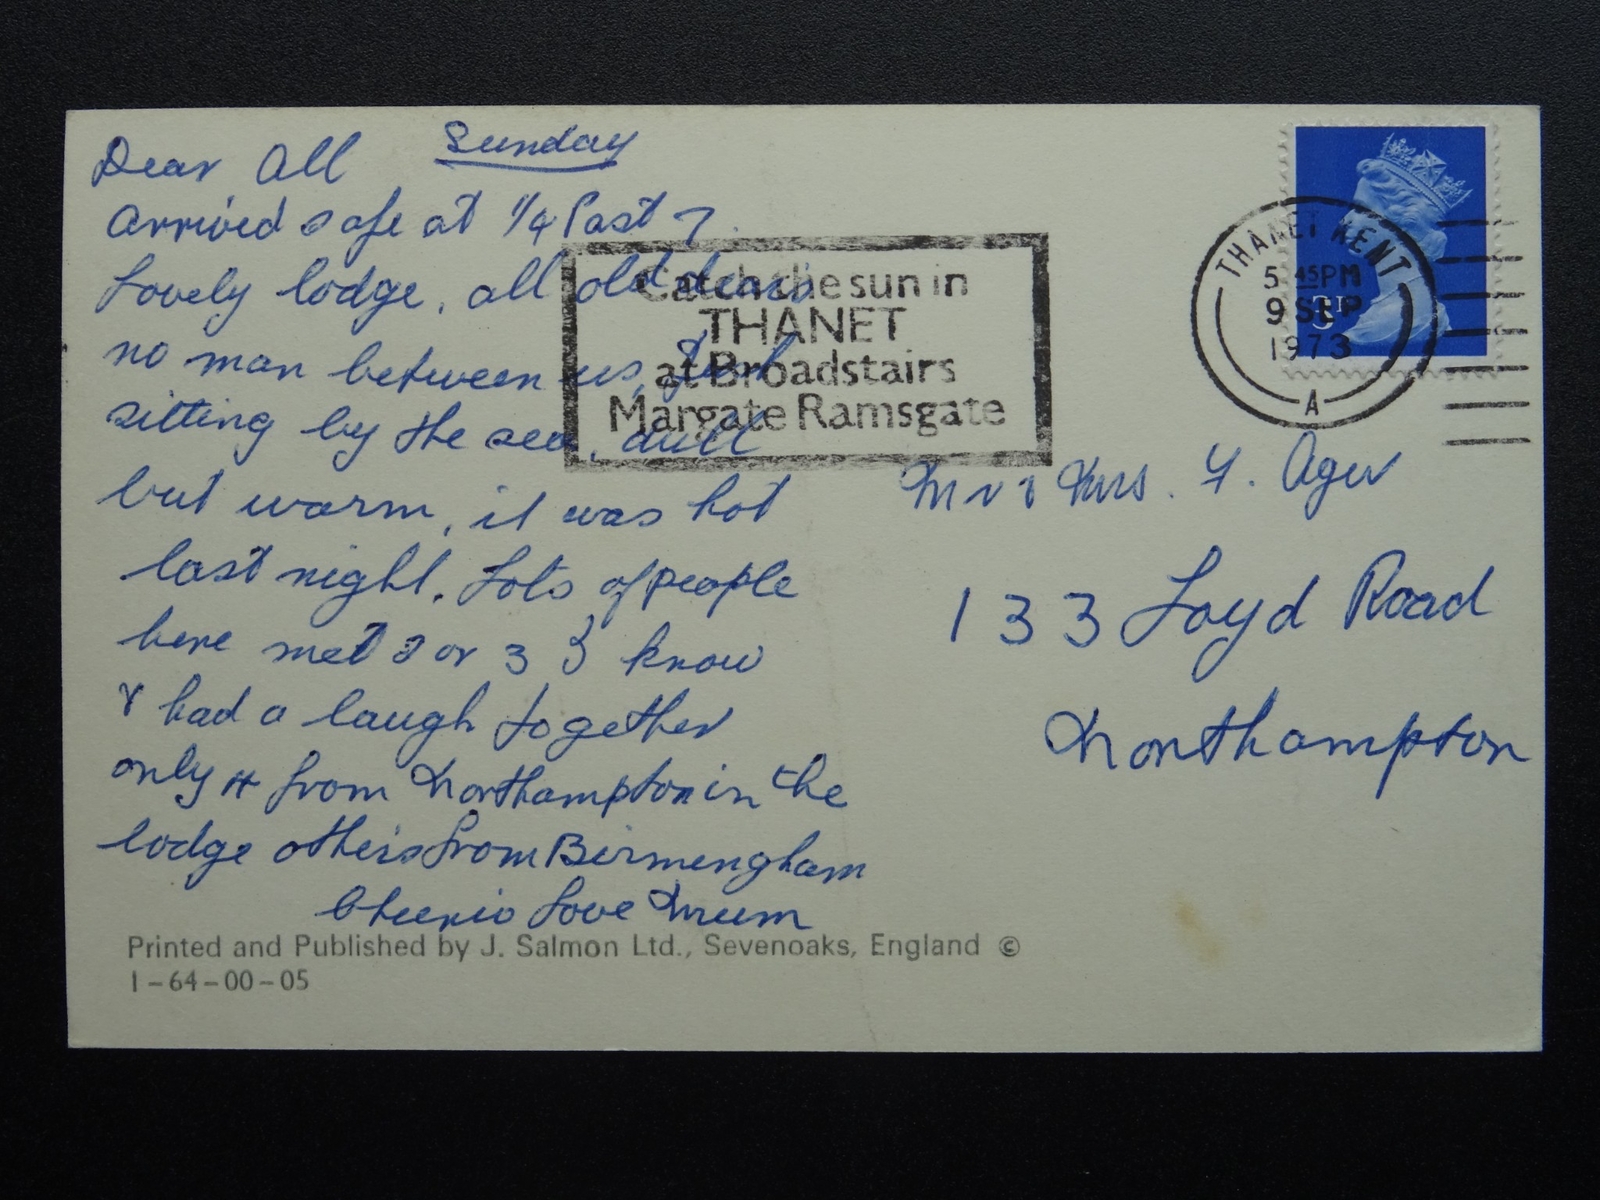 Sunday
Dear All
Arrived safe at 1/4 Past 7.
Lovely lodge, all old dears
no man between us, Just
sitting by the sea, dull
but warm, it was hot
last night. Lots of people
here met 2 or 3 I know
& had a laugh together
only 4 from Northampton in the
lodge others from Birmengham
Cheerio Love Mum
Printed and Published by J. Salmon Ltd., Sevenoaks, England ©
1-64-00-05
Catch the sun in
THANET
at Broadstairs
Margate Ramsgate
THANET KENT
5 45PM
9 SEP
1973
A
3P
Mr & Mrs. F. Ager
133 Loyd Road
Northampton